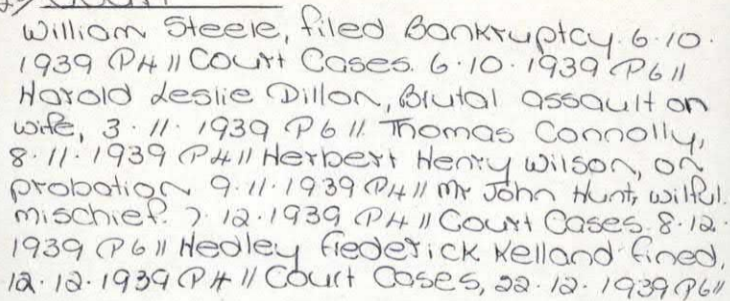 William Steele, filed Bankruptcy. 6.10.
1939 P4 || Court Cases. 6.10.1939 P6 ||
Harold Leslie Dillon, Brutal assault on
wife, 3.11.1939 P6 || Thomas Connolly,
8.11.1939 P4 || Herbert Henry Wilson, on
probation 9.11.1939 P4 || Mr John Hunt, wilful.
mischief. 7.12.1939 P4 || Court Cases. 8.12.
1939 P6 || Hedley Frederick Kelland fined,
12.12.1939 P4 || Court Cases, 22.12.1939 P6 ||